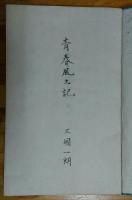 青春風土記
三國一朗